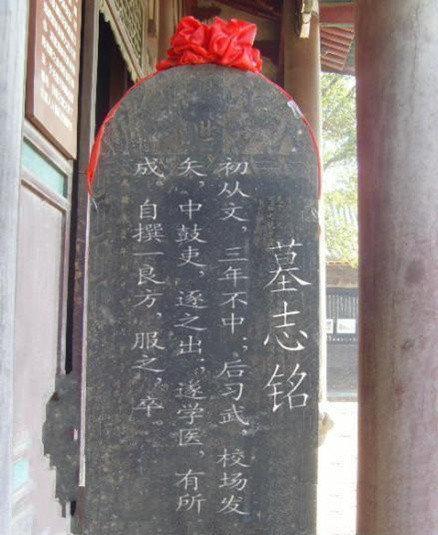 墓志铭
初从文，三年不中；后习武，校场发
矢，中鼓吏，逐之出；遂学医，有所
成。自撰一良方，服之，卒。